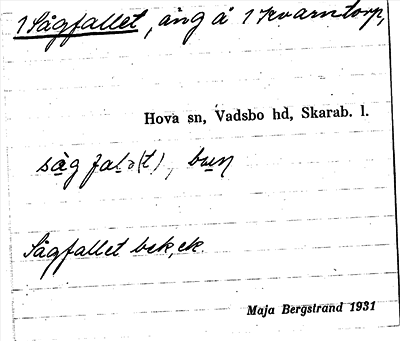 1 Sågfallet, äng å 1 Kvarntorp,
Hova sn, Vadsbo hd, Skarab. l.
såg falə(t), buŋ
Sågfallet bek, ek.
Maja Bergstrand 1931